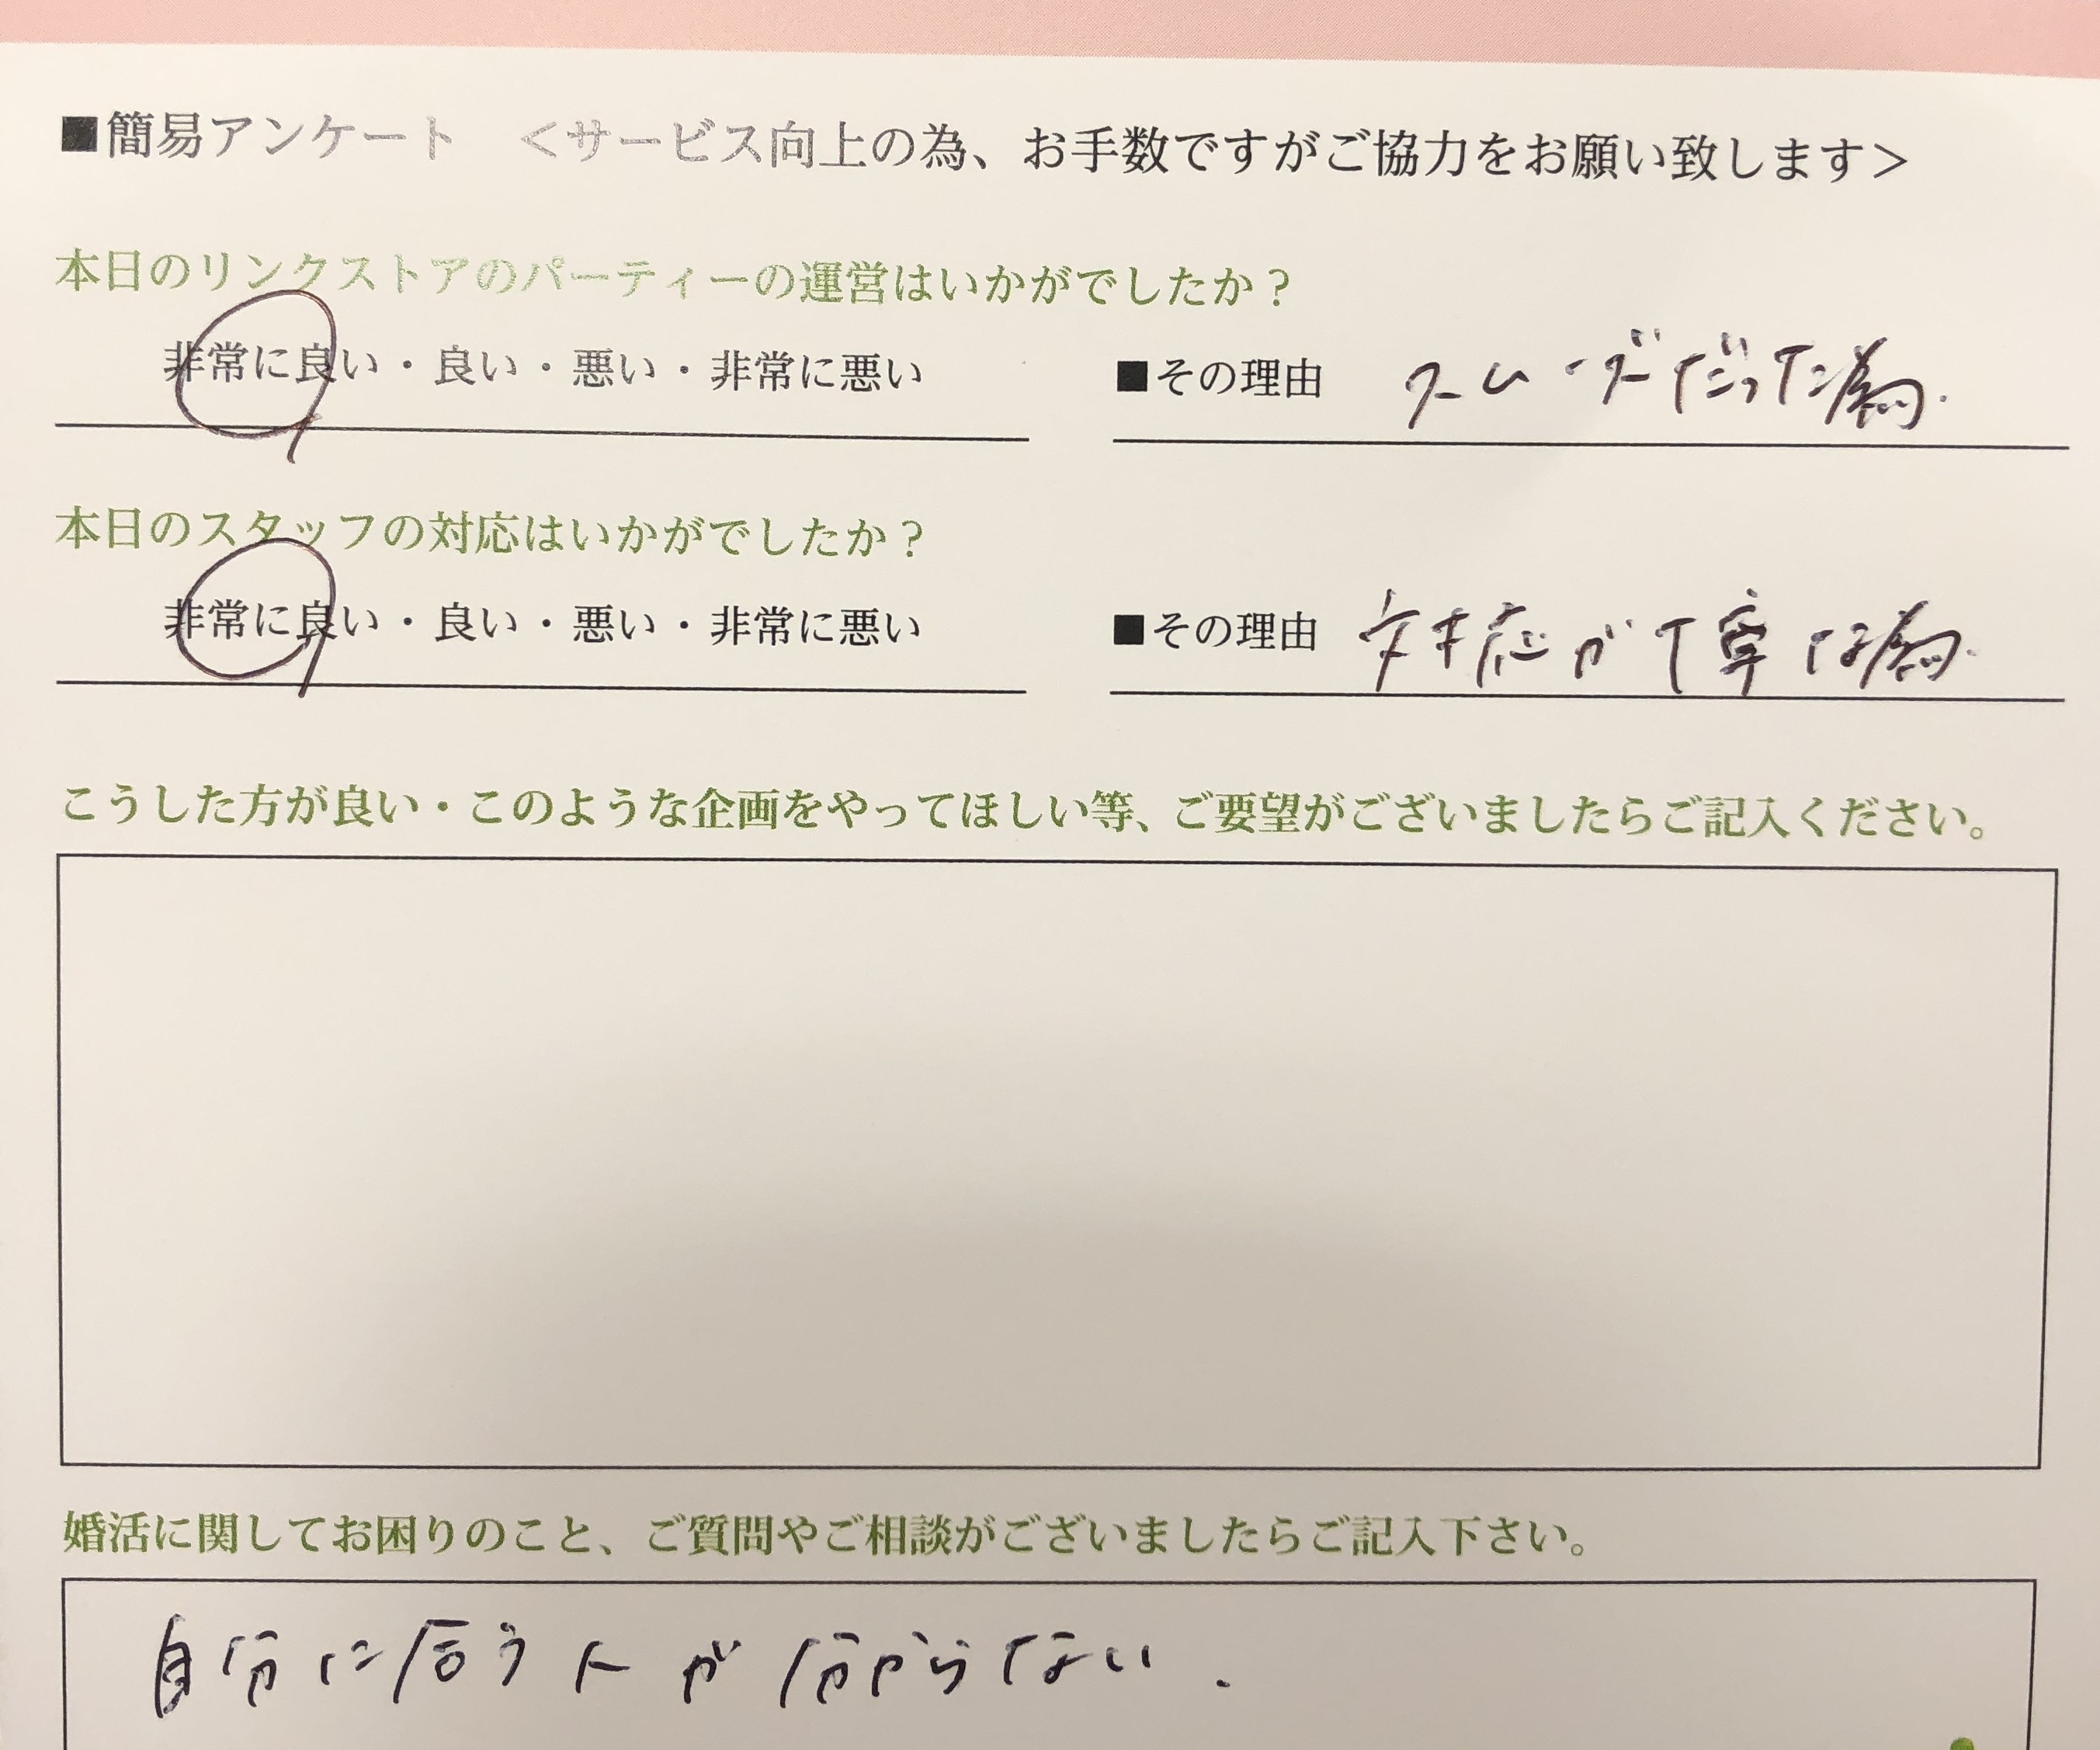 ■簡易アンケート　＜サービス向上の為、お手数ですがご協力をお願い致します＞
本日のリンクストアのパーティーの運営はいかがでしたか？
非常に良い・良い・悪い・非常に悪い　■その理由　スムーズだった為.
本日のスタッフの対応はいかがでしたか？
非常に良い・良い・悪い・非常に悪い　■その理由　対応が丁寧な為.
こうした方が良い・このような企画をやってほしい等、ご要望がございましたらご記入ください。
婚活に関してお困りのこと、ご質問やご相談がございましたらご記入下さい。
自分に合う人が分からない.